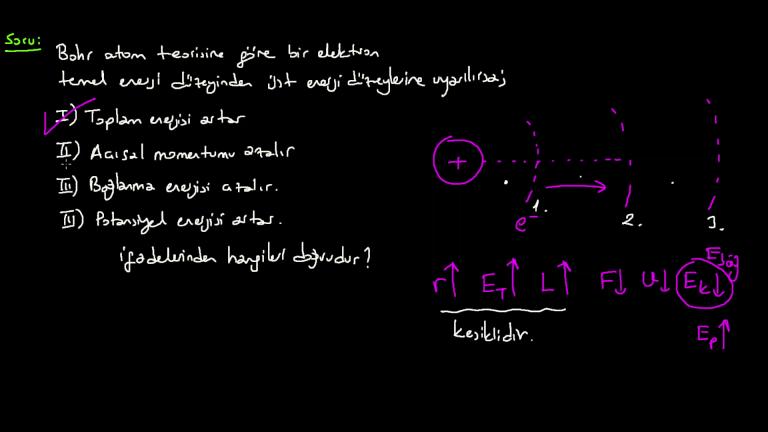 Soru:
Bohr atom teorisine göre bir elektron
temel enerji düzeyinden üst enerji düzeylerine uyarılırsa;
I) Toplam enerjisi artar
II) Açısal momentumu azalır
III) Bağlanma enerjisi azalır.
III) Potansiyel enerjisi artar.
ifadelerinden hangileri doğrudur?
+
e⁻ 1. 2. 3.
r↑ E_T↑ L↑ F↓ v↓ E_k↓ E_bağ
kesiklidir.
E_p↑